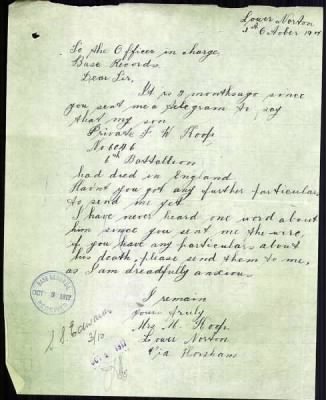 Lower Norton
1st October 1917
To the Officer in charge.
Base Records.
Dear Sir,
It is 2 months ago since
you sent me a telegram to say
that my son
Private F W Hoop
No 6046
6th Battallion
had died in England
Havnt you got any further particulars
to send me yet
I have never heard one word about
him since you sent me the wire,
if you have any particulars about
his death, please send them to me,
as I am dreadfully anxious.
I remain
yours truly
Mrs M. Hoop.
Lower Norton
Via Horsham
BASE RECORDS
OCT 3 1917
3/10
OCT 1917